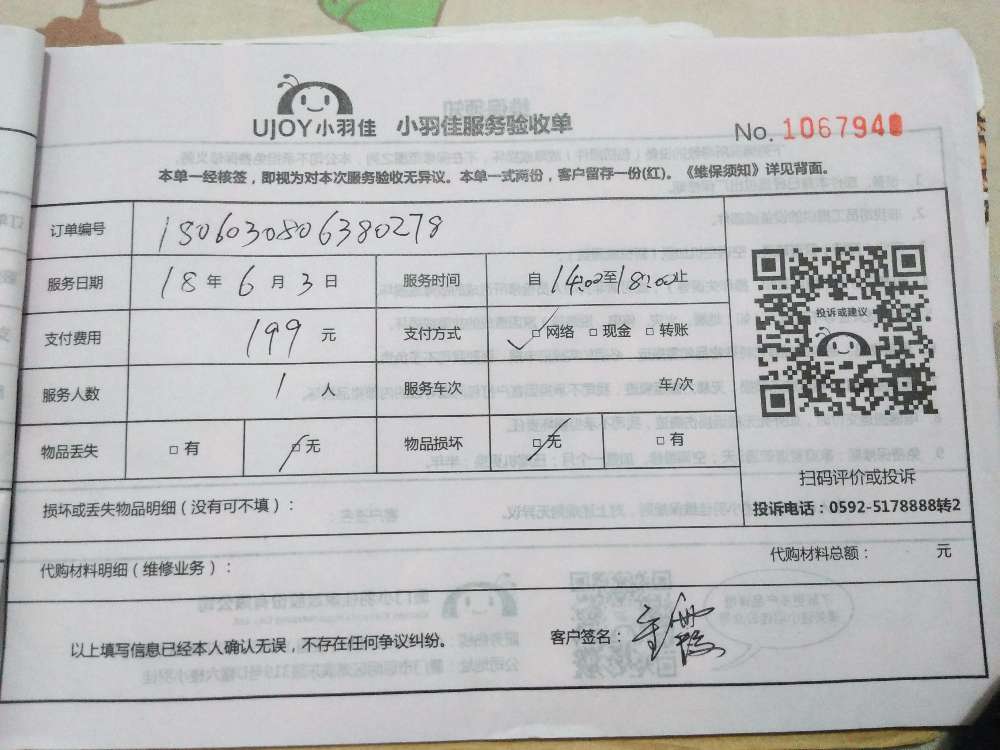 UJOY小羽佳 小羽佳服务验收单 No. 1067948
本单一经核签，即视为对本次服务验收无异议。本单一式两份，客户留存一份(红)。《维保须知》详见背面。
订单编号 1806030806380278
服务日期 18 年 6 月 3 日 服务时间 自 14:00 至 18:00 止
支付费用 199 元 支付方式 □网络 □现金 □转账
服务人数 1 人 服务车次 车/次
物品丢失 □有 □无 物品损坏 □无 □有
投诉或建议
扫码评价或投诉
投诉电话：0592-5178888转2
损坏或丢失物品明细（没有可不填）：
代购材料明细（维修业务）： 代购材料总额： 元
以上填写信息已经本人确认无误，不存在任何争议纠纷。 客户签名：